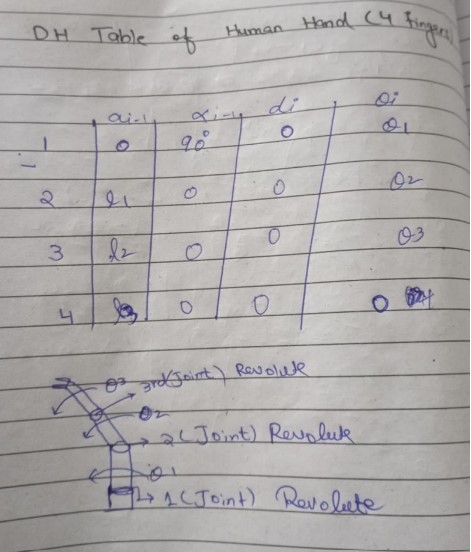 DH Table of Human Hand (4 fingers)
ai-1 αi-1 di θi
1 0 90° 0 θ1
2 l1 0 0 θ2
3 l2 0 0 θ3
4 l3 0 0 0
θ3 3rd(Joint) Revolute
θ2
2 (Joint) Revolute
θ1
1 (Joint) Revolute